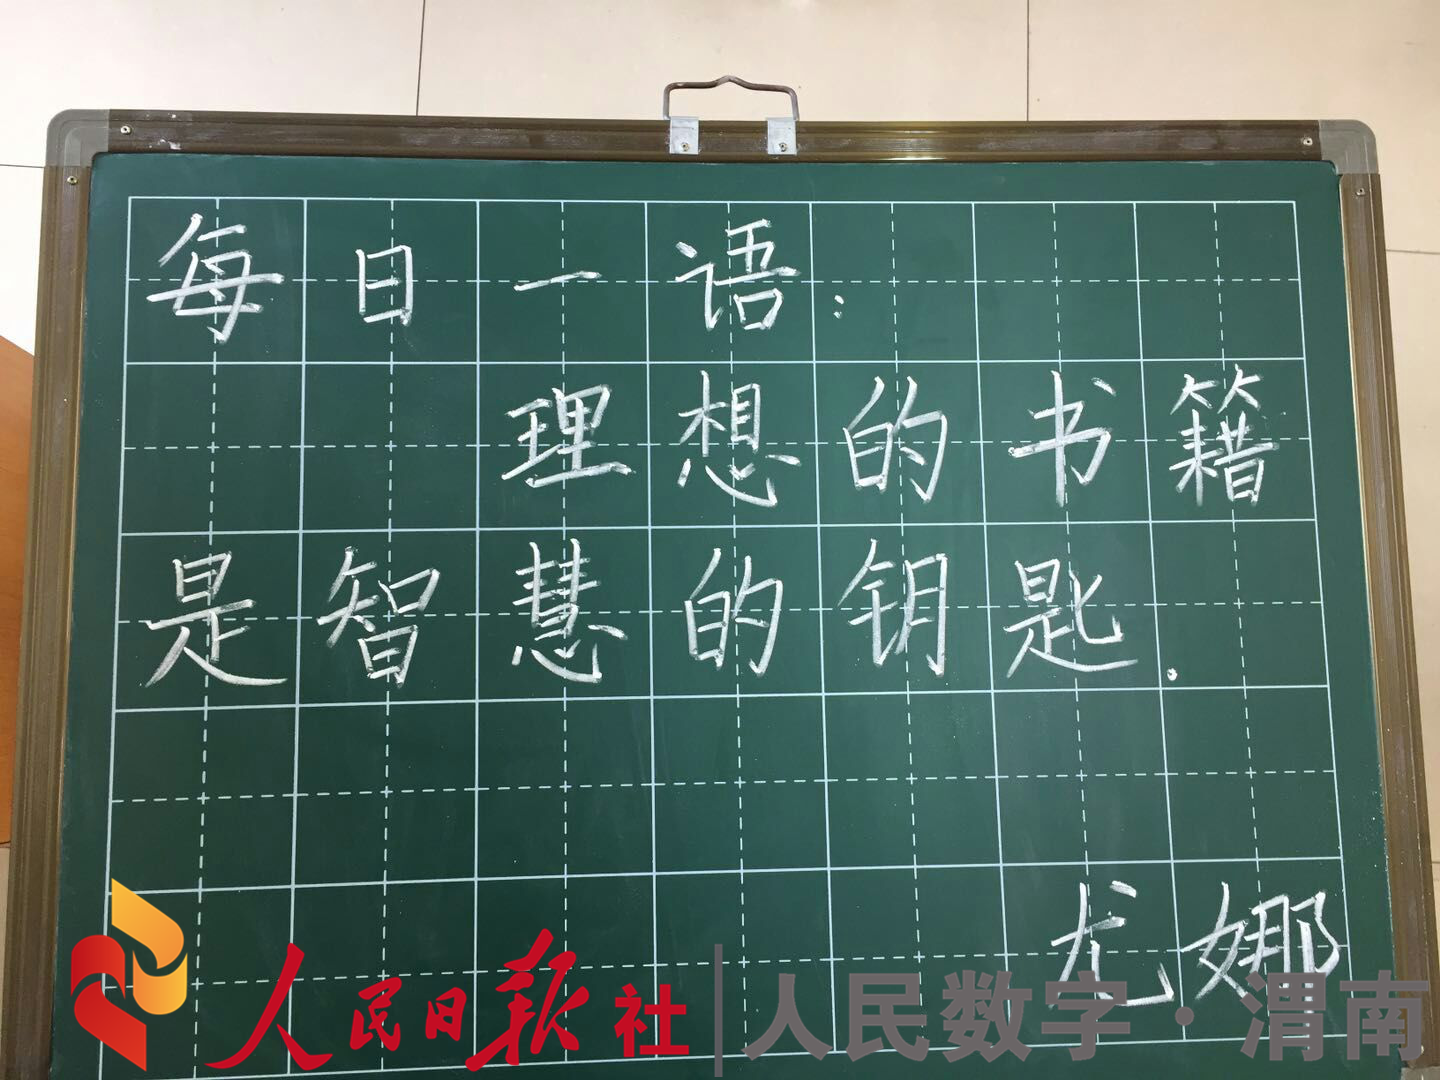 每日一语:
理想的书籍
是智慧的钥匙.
尤娜
人民日报社|人民数字·渭南